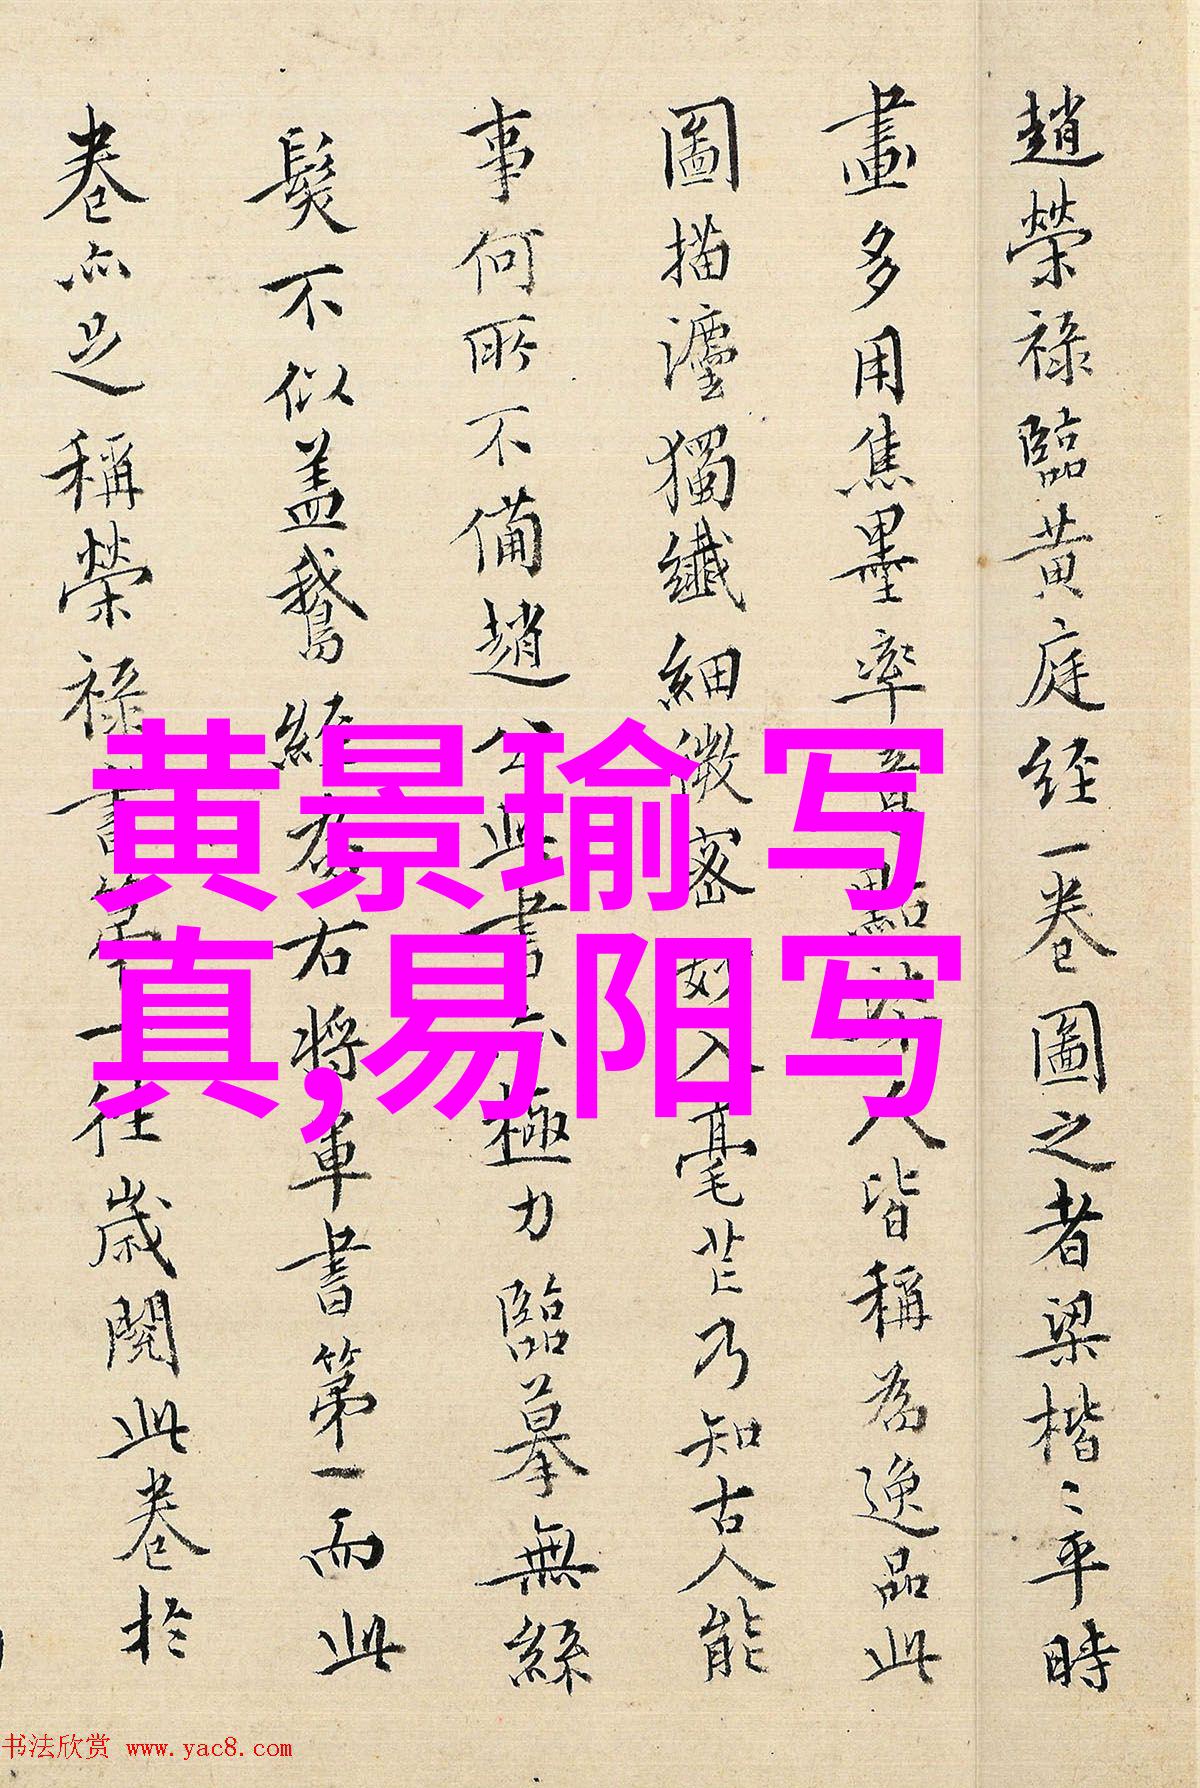 趙榮祿臨黄庭經一卷圖之者梁楷〻平時
畫多用焦墨率人皆稱為逸品此
圖描瀍獨纖細微密妙入毫芒乃知古人能
事何所不備趙公此書極力臨摹無絲
髮不似盖鵝經為右將軍書第一而此
卷亦足稱榮祿書第一往歲閱此卷於
黄景瑜 写
真,易阳写
书法欣赏 www.yac8.com